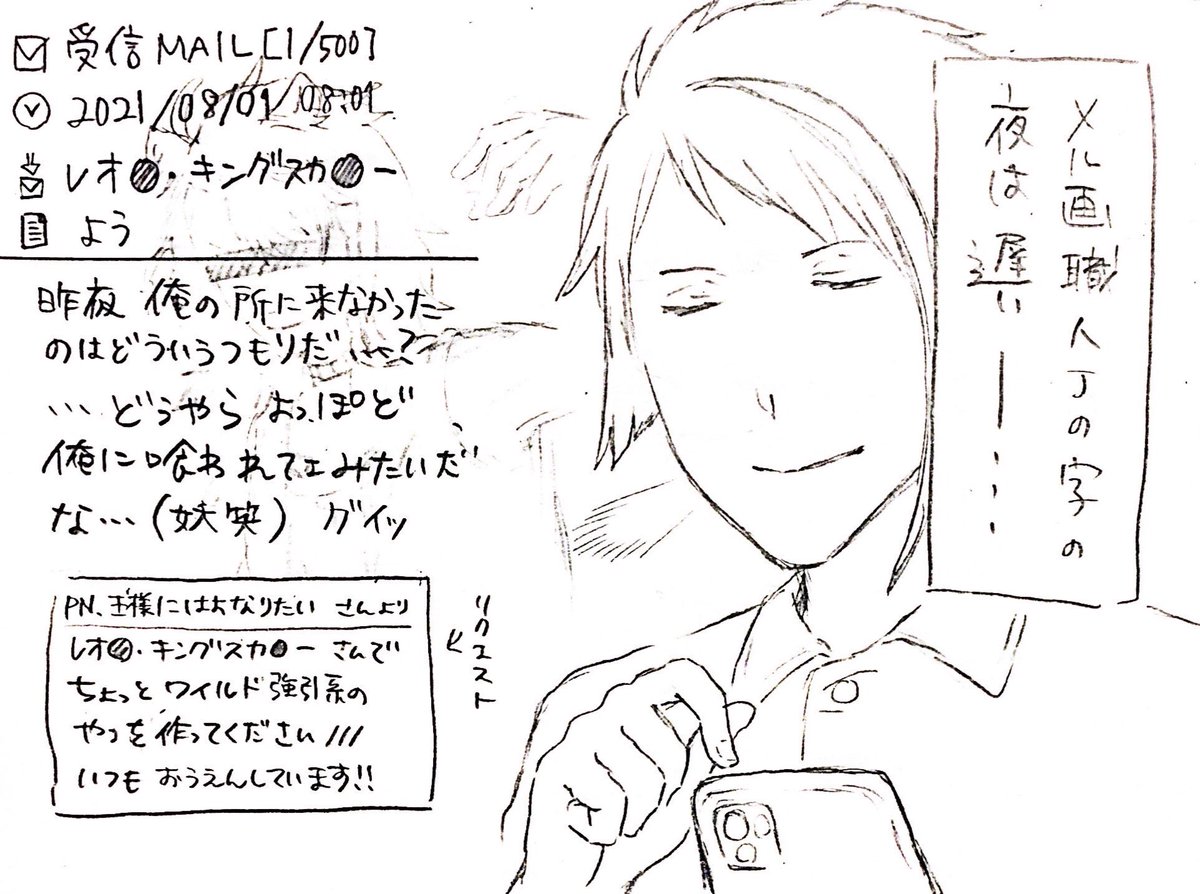 受信MAIL[1/500]
2021/08/01/08:01
レオ●・キングスカ●ー
よう
昨夜 俺の所に来なかった
のはどういうつもりだ……?
…どうやら よっぽど
俺に喰われてェみたいだ
な…(妖笑) グイッ
PN、王様にはおなりたい さんより
レオ●・キングスカ●ー さんで
ちょっと ワイルド 強引系の
やつを 作ってください///
いつも おうえんしています!!
リクエスト
メル画職人Jの字の
夜は遅い――…